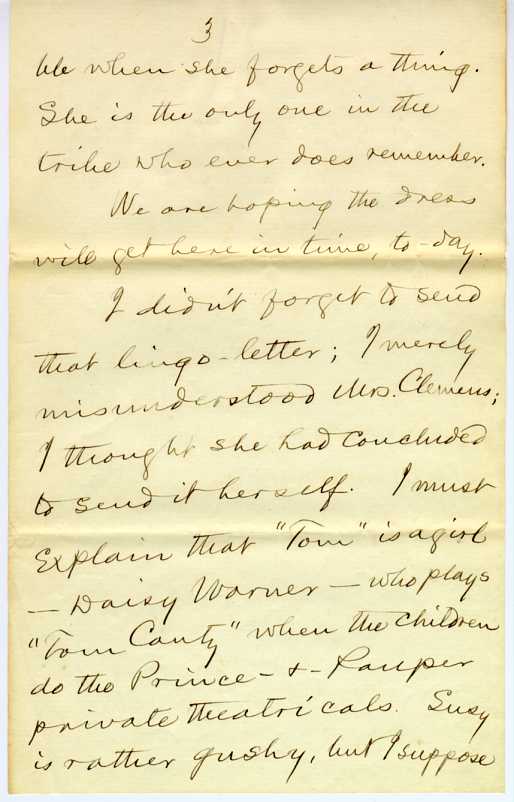 3
ble when she forgets a thing.
She is the only one in the
tribe who ever does remember.
We are hoping the dress
will get here in time, to-day.
I didn't forget to send
that lingo-letter; I merely
misunderstood Mrs. Clemens;
I thought she had concluded
to send it herself. I must
explain that "Tom" is a girl
— Daisy Warner — who plays
"Tom Canty" when the children
do the Prince-&-Pauper
private theatricals. Susy
is rather gushy, but I suppose